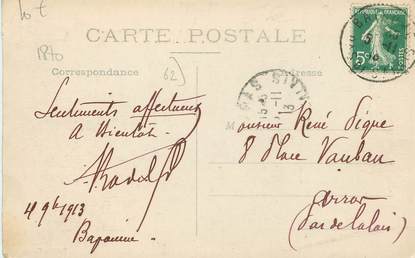 lot
1870
CARTE POSTALE
Correspondance
Adresse
62
5c
Sentiments affectueux
A Bientôt
Rodolf
4 9bre 1913
Bapaume
Monsieur René Pigue
8 Place Vauban
Arras
(Pas de Calais)